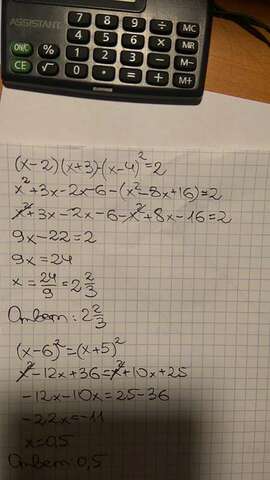 ASSISTANT
ON/C % 7 8 9 ÷ MC
CE √ 4 5 6 × MR
1 2 3 − M−
0 . = + M+
(x-2)(x+3)-(x-4)²=2
x²+3x-2x-6-(x²-8x+16)=2
x²+3x-2x-6-x²+8x-16=2
9x-22=2
9x=24
x=24/9=2 2/3
Ответ: 2 2/3
(x-6)²=(x+5)²
x²-12x+36=x²+10x+25
-12x-10x=25-36
-22x=-11
x=0,5
Ответ: 0,5